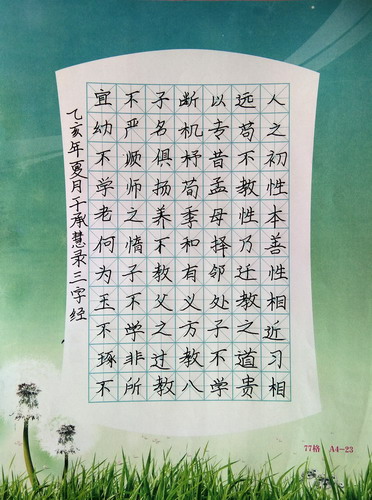 人之初性本善性相近习相
远苟不教性乃迁教之道贵
以专昔孟母择邻处子不学
断机杼苟季和有义方教八
子名俱扬养不教父之过教
不严顺师之惰子不学非所
宜幼不学老何为玉不琢不
乙亥年夏月于承慧录三字经
77格 A4-23